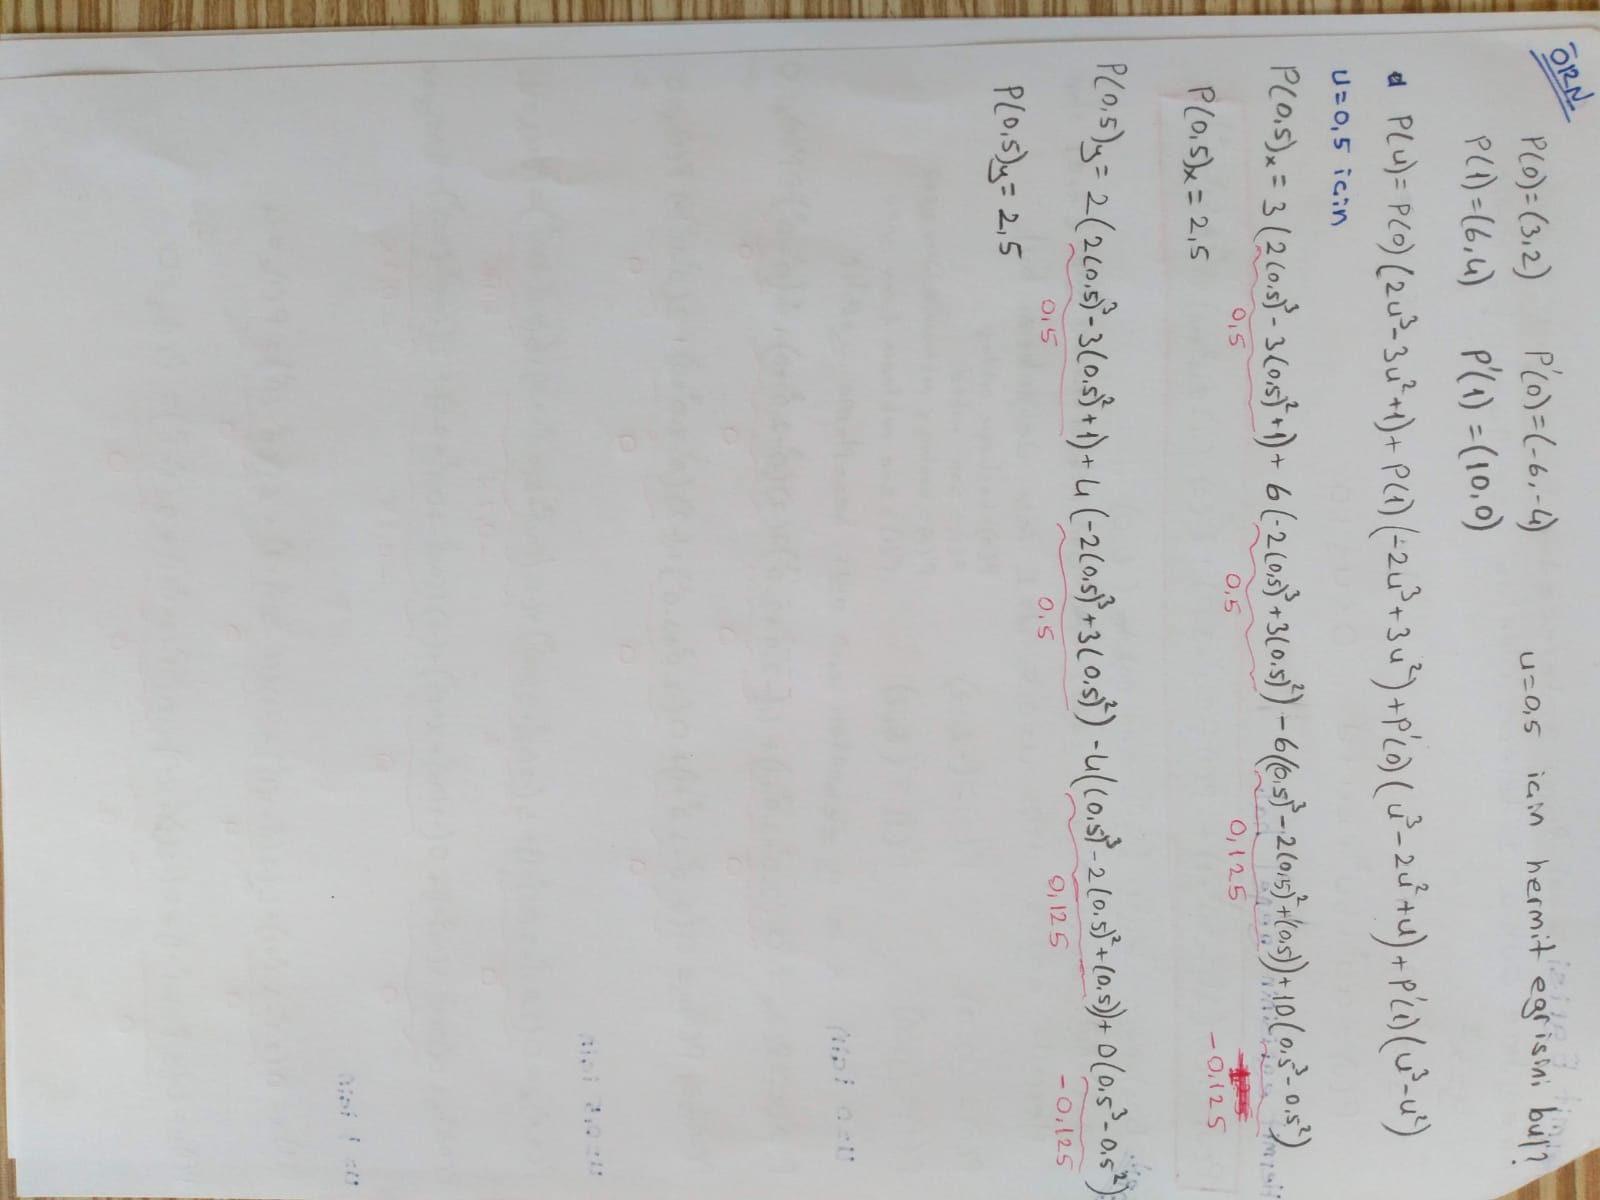 ÖRN
P(0)=(3,2) P'(0)=(-6,-4) u=0,5 için hermit egrisini bul?
P(1)=(6,4) P'(1)=(10,0)
P(u)=P(0)(2u³-3u²+1)+P(1)(-2u³+3u²)+P'(0)(u³-2u²+u)+P'(1)(u³-u²)
u=0,5 için
P(0,5)x=3(2(0,5)³-3(0,5)²+1)+6(-2(0,5)³+3(0,5)²)-6((0,5)³-2(0,5)²+(0,5))+10(0,5³-0,5²)
0,5 0,5 0,125 -0,125
P(0,5)x=2,5
P(0,5)y=2(2(0,5)³-3(0,5)²+1)+4(-2(0,5)³+3(0,5)²)-4((0,5)³-2(0,5)²+(0,5))+0(0,5³-0,5²)
0,5 0,5 0,125 -0,125
P(0,5)y=2,5